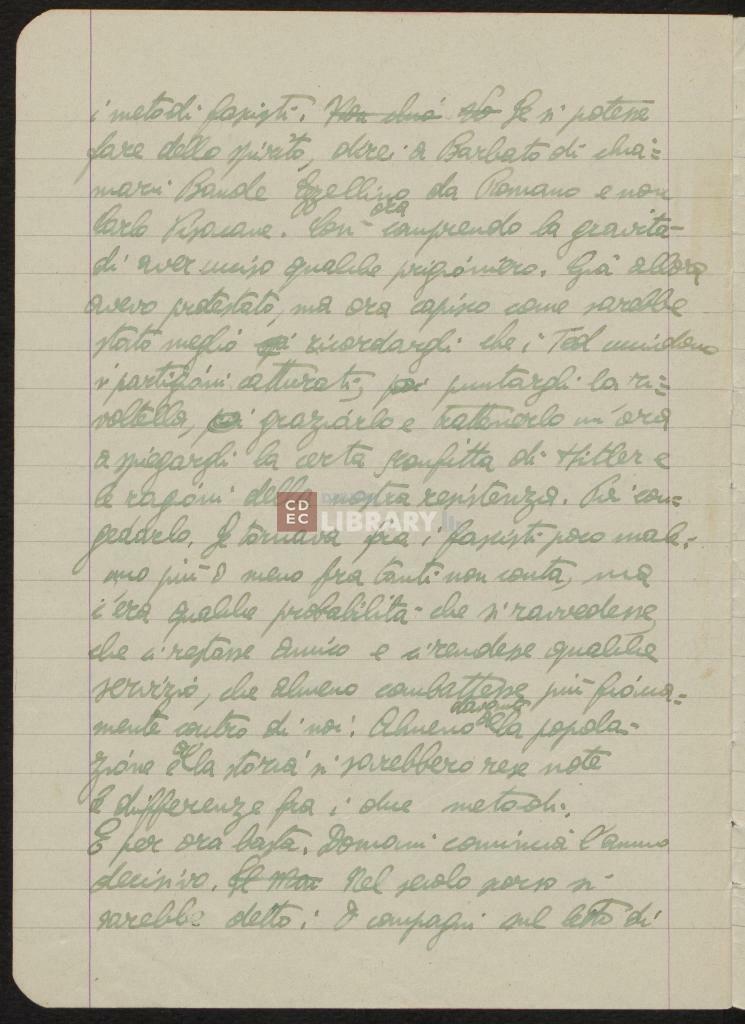 i metodi fascisti. Non chià So Se si potesse
fare dello spirito, direi a Barbato di chia=
marsi Bande Ezzellino da Romano e non
Carlo Pisacane. Così ora comprendo la gravità
di aver ucciso qualche prigioniero. Già allora
avevo protestato, ma ora capisco come sarebbe
stato meglio ricordargli che i Ted uccidono
i partigiani catturati, poi puntargli la ri=
voltella, poi graziarlo e trattenerlo un'ora
a spiegargli la certa sconfitta di Hitler e
le ragioni della nostra resistenza. Poi con=
gedarlo. Se tornava fra i fascisti poco male:
uno più o meno fra tanti non conta, ma
c'era qualche probabilità che si ravvedesse,
che ci restasse amico e ci rendesse qualche
servizio, che almeno combattesse più fiacca=
mente contro di noi. Almeno davanti alla popola=
zione e alla storia si sarebbero rese note
le differenze fra i due metodi.
E per ora basta. Domani comincia l'anno
decisivo. Nel secolo scorso si
sarebbe detto: O compagni sul letto di
CDEC
DIGITAL
LIBRARY